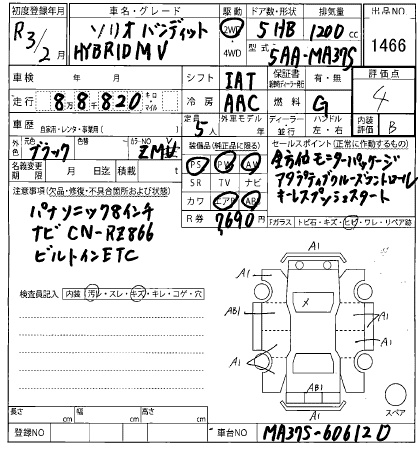 初度登録年月 車名・グレード 駆動 ドア数・形状 排気量 出品NO
R3/2月 ソリオ バンディット HYBRID MV 2WD・4WD 5 HB 1200cc 1466
型式 5AA-MA37S
車検 年 月 シフト IAT 保証書 有・無 評価点
走行 8万8千820 キロ・マイル 冷房 AAC 燃料 G 4
車歴 自家用・レンタ・事業用( ) 定員 5人 外車モデル 年 ディーラー・並行 ハンドル 左・右 内装評価 B
外色 元色 ブラック 色替 カラーNO ZMV 装備品(純正品に限る) セールスポイント(正常に作動するもの)
名義変更期限 月 日 積載 t PS PW AW 全方位モニターパッケージ
注意事項(欠品・修復・不具合箇所および状態) SR TV ナビ アダプティブクルーズコントロール
パナソニック8インチ カワ エアB ABS キーレスプッシュスタート
ナビ CN-RZ866 R券 7690円 Fガラス トビ石・キズ・ヒビ・ワレ・リペア跡
ビルトインETC
検査員記入 内装 汚レ・スレ・キズ・キレ・コゲ・穴
A1
A1 A1
AB1 A1
A1
A1
AB1
A1
スペア
長さ cm 幅 cm 高さ cm
登録NO 車台NO MA37S-606120